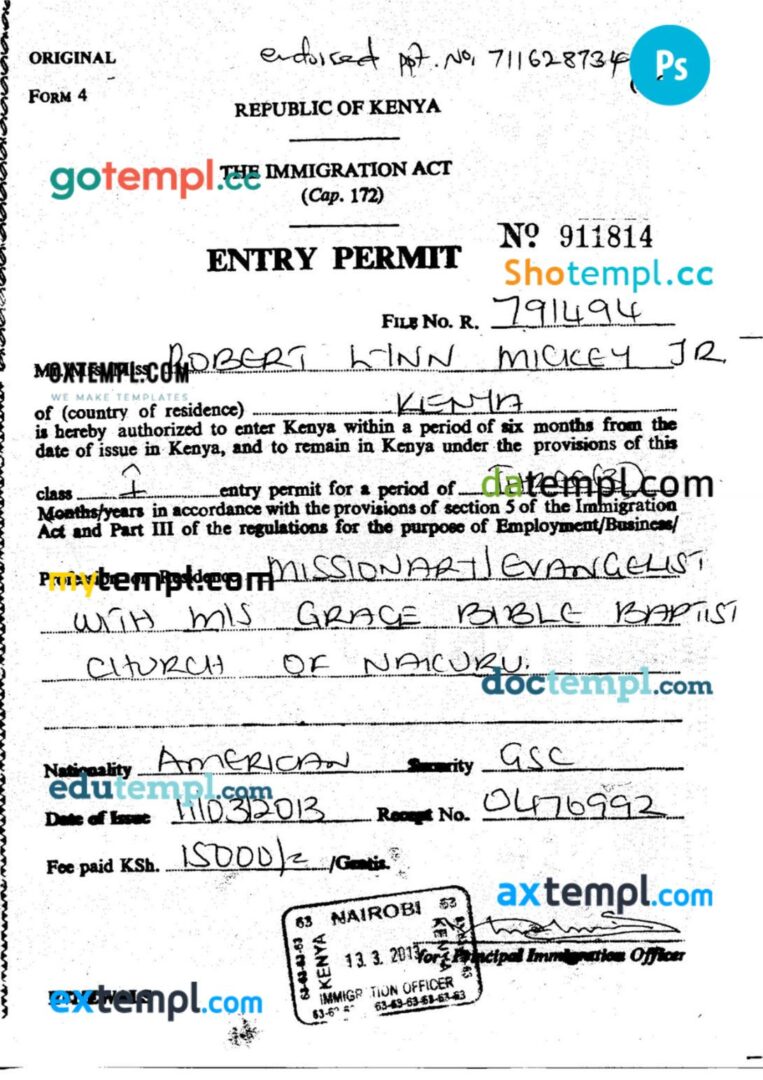 ORIGINAL
endorsed ppt. No, 711628734
Ps
FORM 4
REPUBLIC OF KENYA
gotempl.cc
THE IMMIGRATION ACT
(Cap. 172)
ENTRY PERMIT
No 911814
Shotempl.cc
FILE No. R. 791494
OXTEMPL.COM
ROBERT LINN MICKEY JR.
WE MAKE TEMPLATES
of (country of residence) KENYA
is hereby authorized to enter Kenya within a period of six months from the
date of issue in Kenya, and to remain in Kenya under the provisions of this
class I entry permit for a period of
datempl.com
Months/years in accordance with the provisions of section 5 of the Immigration
Act and Part III of the regulations for the purpose of Employment/Business/
mytempl.com
MISSIONARY/EVANGELIST
WITH M/S GRACE BIBLE BAPTIST
CHURCH OF NAKURU.
doctempl.com
Nationality AMERICAN Security GSC
edutempl.com
Date of Issue 11/03/2013 Receipt No. 0476992
Fee paid KSh. 15000/= /Gratis.
axtempl.com
63 NAIROBI 63
KENYA
KENYA
13. 3. 2013
for Principal Immigration Officer
IMMIGRATION OFFICER
63-63-63-63-63-63
extempl.com